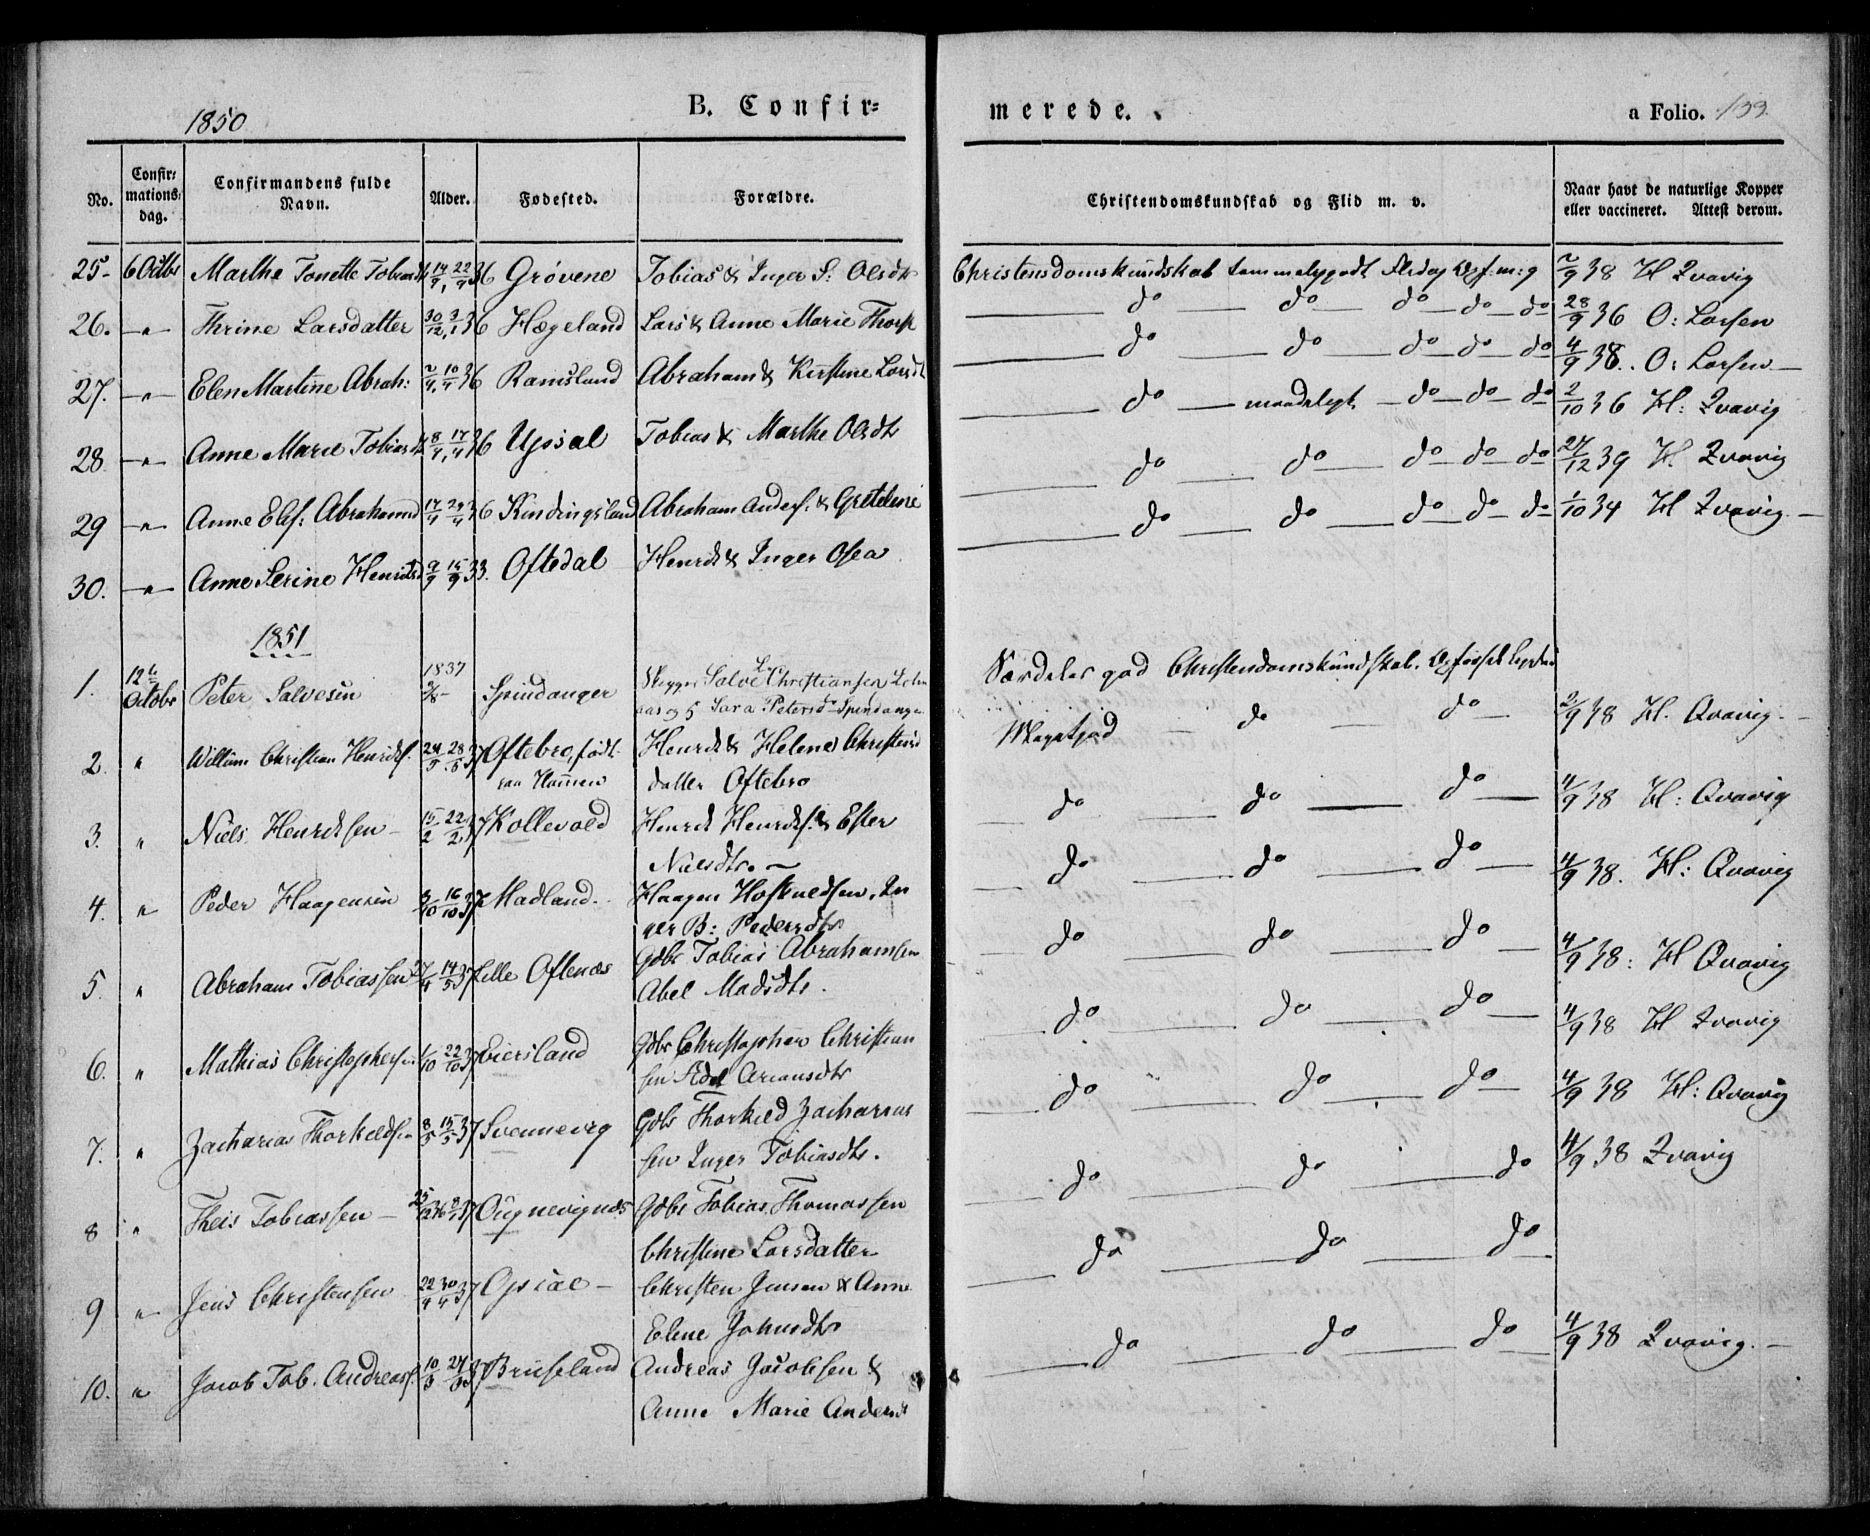 1850
B. Confir=
merede.
a Folio. 133
No.
Confir=
mations=
dag.
Confirmandens fulde
Navn.
Alder.
Fødested.
Forældre.
Christendomskundskab og Flid m. v.
Naar havt de naturlige Kopper
eller vaccineret. Attest derom.
25 Marthe Tonette 14/9, 22/9 36 Grövene Tobias & Inger S: Olsdtr Christendomskundskab 38
26. " Thrine Larsdatter 30/12, 3/1 36 Hægeland Lars & Anne Marie Thorp do do do do do 28/9 36 O: Larsen
27. " Elen Martine Abrah: 10/4 36 Ramsland Abraham & Kirstine Larsdt do do do do do 4/9 38. O: Larsen
28 " Anne Marie Tobiasd 8/4, 17/4 36 Upsal Tobias & Marthe Olsdtr do maadelgt do do do 2/10 36 H: Qvavig
29 " Anne Elis: Abrahamsd 17/4 29/4 36 Kindingsland Abraham Anders. & do do do do do 27/12 39 H. Qvavig
30. " Anne Serine Henriksd 9/9 15/9 33. Oftedal Henrik & Inger Osea do do do do do 1/10 34 H Qvavig
1851
1837
1. 12te Octobr Peter Salvesen Spindanger Salve Christiansen
og Sara Petersd Spindanger
Særdeles god Christendomskundskab.
2. " Willum Christian Henriks. 28/5 37 Oftebro, født Henrik & Helene Christens
datter Oftebro
do do 2/9 38 H. Qvavig.
3. " Niels Henriksen 15/2 22/2 37 Kollevold Henrik Henriks. & Ester
Nielsdtr.
do do do 4/9 38 H: Qvavig
4. " Peder Haagensen 8/10 16/10 37 Madland. Haagen In
ger B: Pedersdtr
do do do 4/9 38. H: Qvavig
5. " Abraham Tobiassen 27/4 14/5 37 Lille Oftenæs Gdbr Tobias Abrahamsen
Abel Madsdtr.
do do do 4/9 38: H Qvavig
6. " Mathias Christophersen 1/10 22/10 37 Eiersland Gdbr Christopher Christian
sen Adel
do do do 4/9 38 H Qvavig
7. " Zacharias Thorkeldsen 8/5 15/5 37 Svennevig Gdbr Thorkild Zacharias
sen Inger Tobiasdtr.
do do do 4/9 38 H: Qvavig
8 " Theis Tobiassen 25/12 36 8/1 37 Gdbr Tobias Thomassen
Christine Larsdatter
do do do 4/9 38 Qvavig
9 " Jens Christensen 22/4 30/4 37 Opsal Christen Jensen & Anne
Elene Johnsdtr
do do do
10. " Jacob Tob. Andreass. Bruseland Andreas Jacobsen &
Anne Marie Andersdt
do do do 4/9 38 Qvavig.